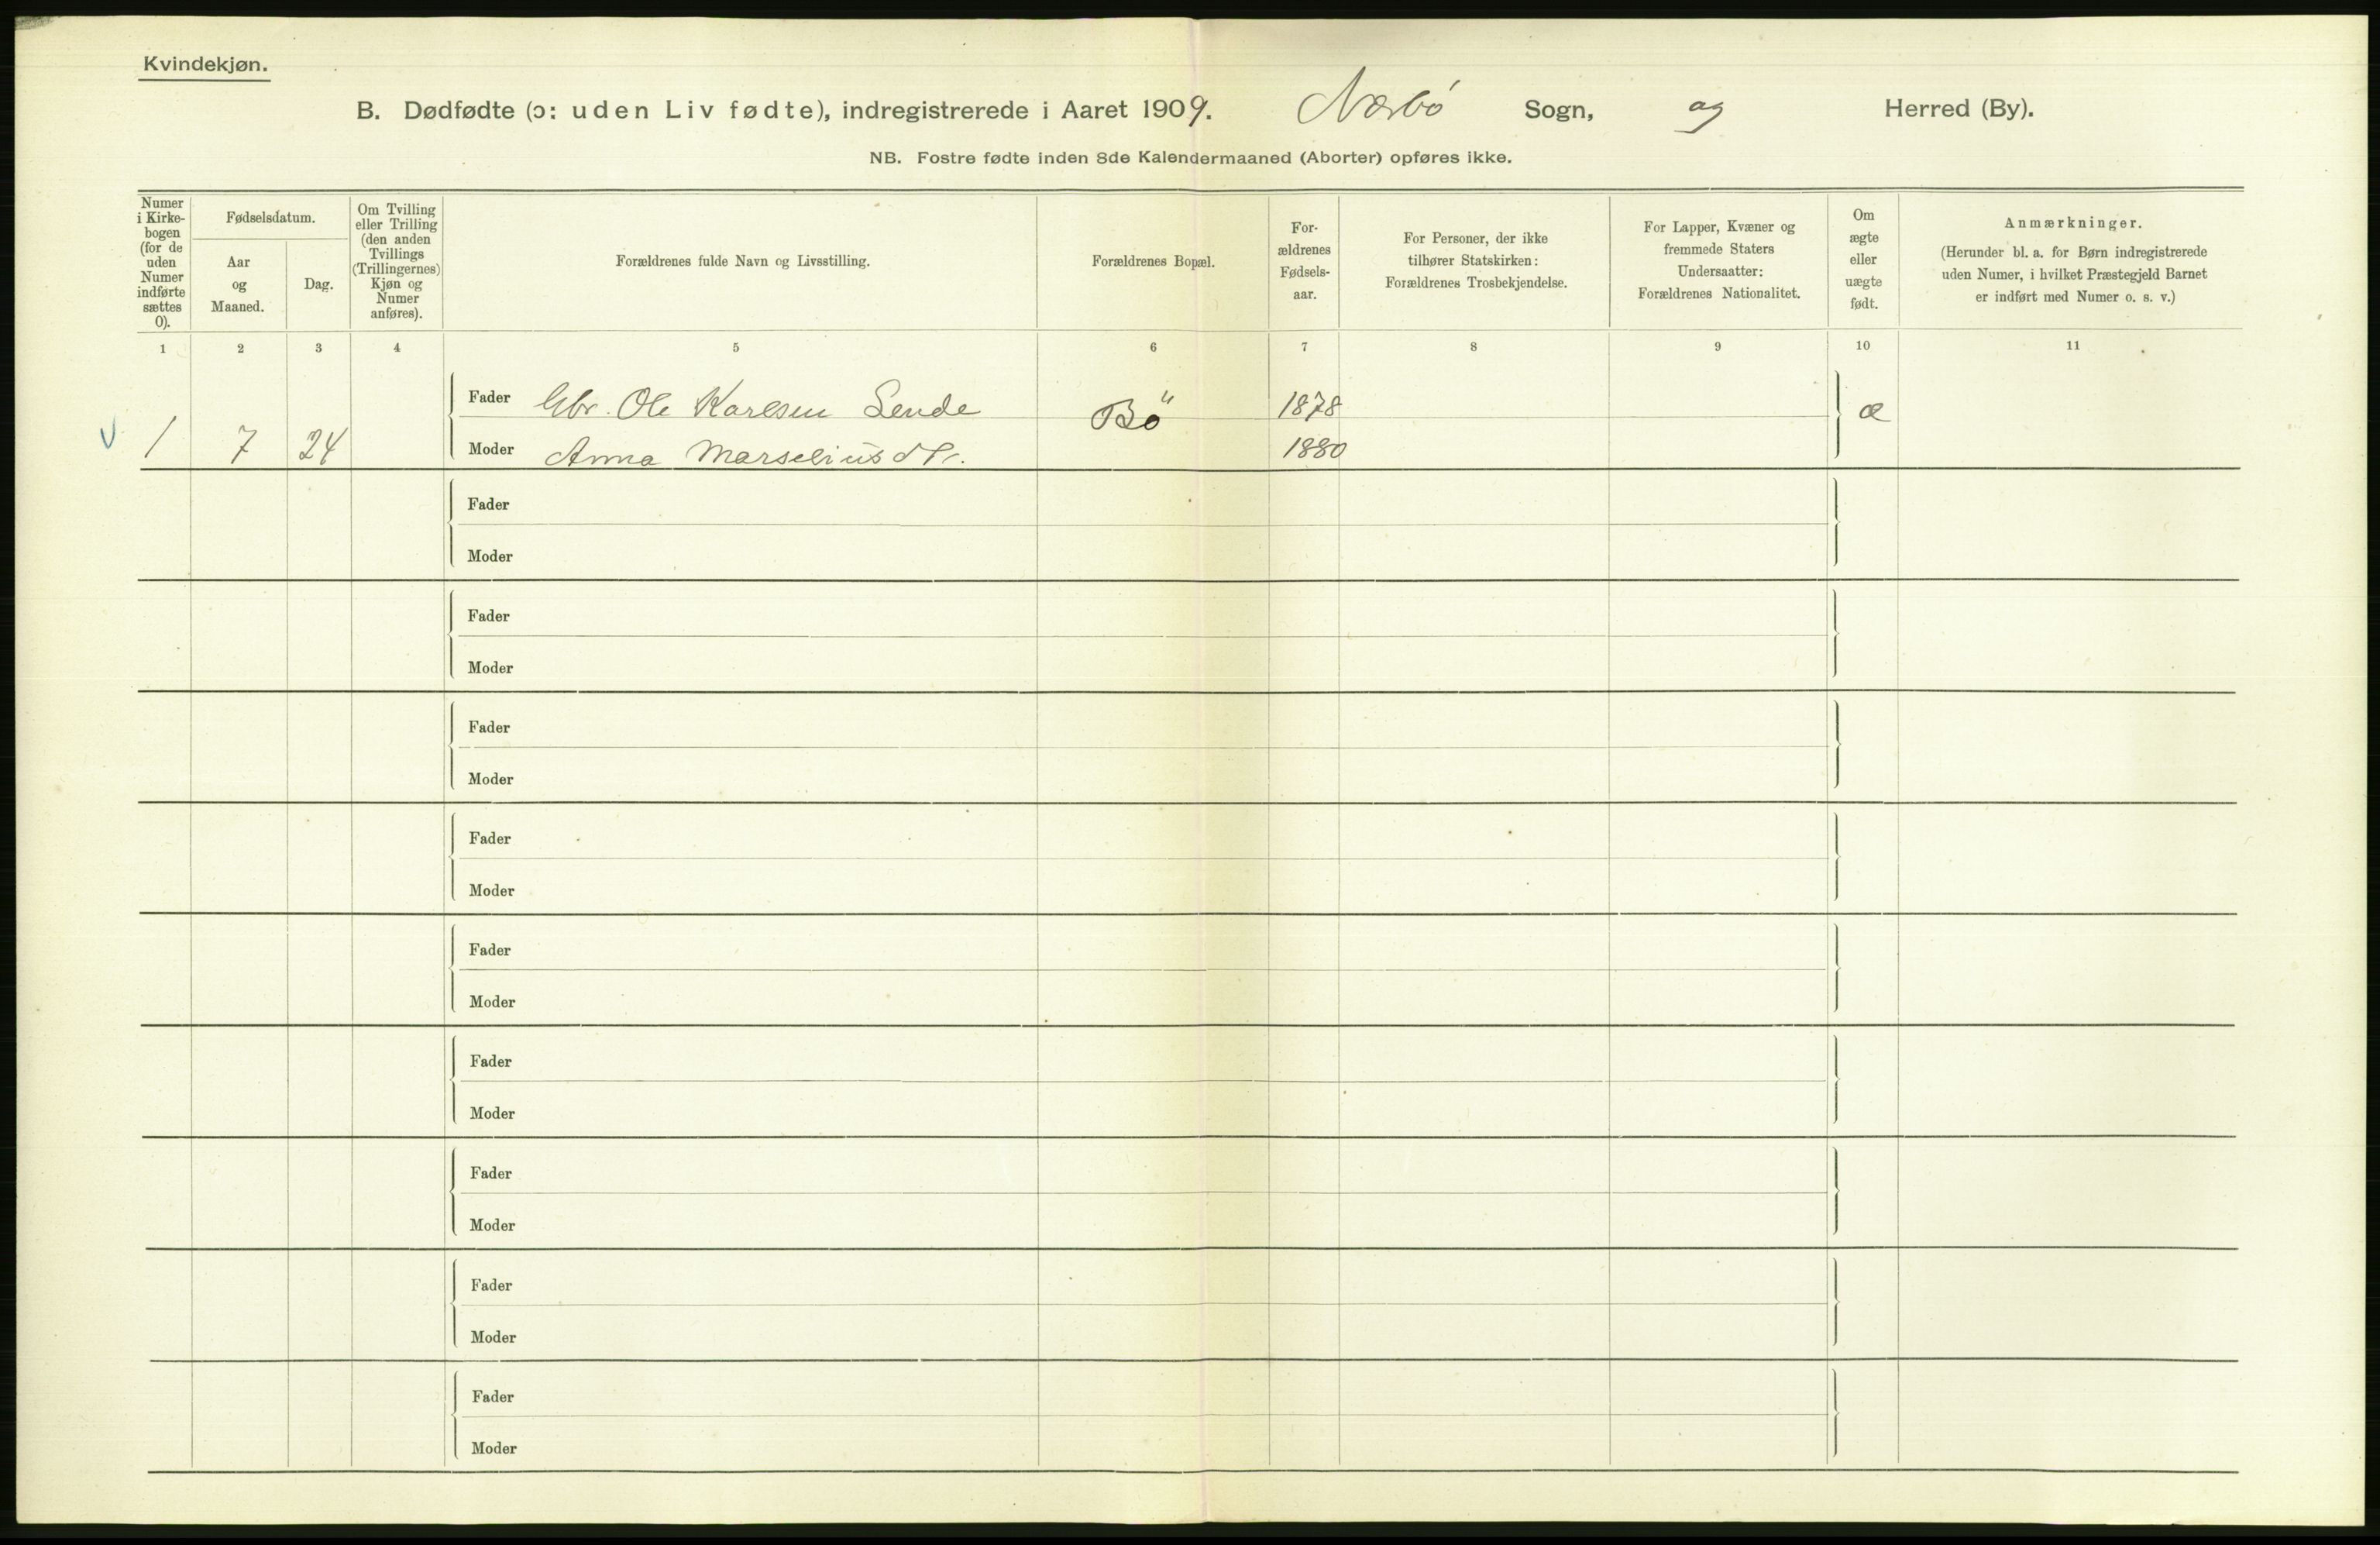 Kvindekjøn.
B. Dødfødte (ɔ: uden Liv fødte), indregistrerede i Aaret 1909. Nærbö Sogn, og Herred (By).
NB. Fostre fødte inden 8de Kalendermaaned (Aborter) opføres ikke.
Numer
i Kirke-
bogen
(for de
uden
Numer
indførte
sættes
0).
Fødselsdatum.
Aar
og
Maaned.
Dag.
Om Tvilling
eller Trilling
(den anden
Tvillings
(Trillingernes)
Kjøn og
Numer
anføres).
Forældrenes fulde Navn og Livsstilling.
Forældrenes Bopæl.
For-
ældrenes
Fødsels-
aar.
For Personer, der ikke
tilhører Statskirken:
Forældrenes Trosbekjendelse.
For Lapper, Kvæner og
fremmede Staters
Undersaatter:
Forældrenes Nationalitet.
Om
ægte
eller
uægte
født.
Anmærkninger.
(Herunder bl. a. for Børn indregistrerede
uden Numer, i hvilket Præstegjeld Barnet
er indført med Numer o. s. v.)
1 2 3 4 5 6 7 8 9 10 11
Fader Gbr. Ole Karlsen Lende Bö 1878 æ
V 1 7 24 Moder Anna Marseliusdtr. 1880
Fader
Moder
Fader
Moder
Fader
Moder
Fader
Moder
Fader
Moder
Fader
Moder
Fader
Moder
Fader
Moder
Fader
Moder